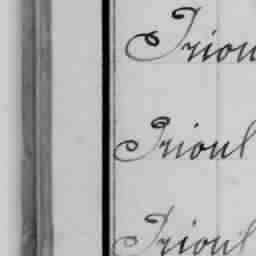 Triou
Trioul
Trioul